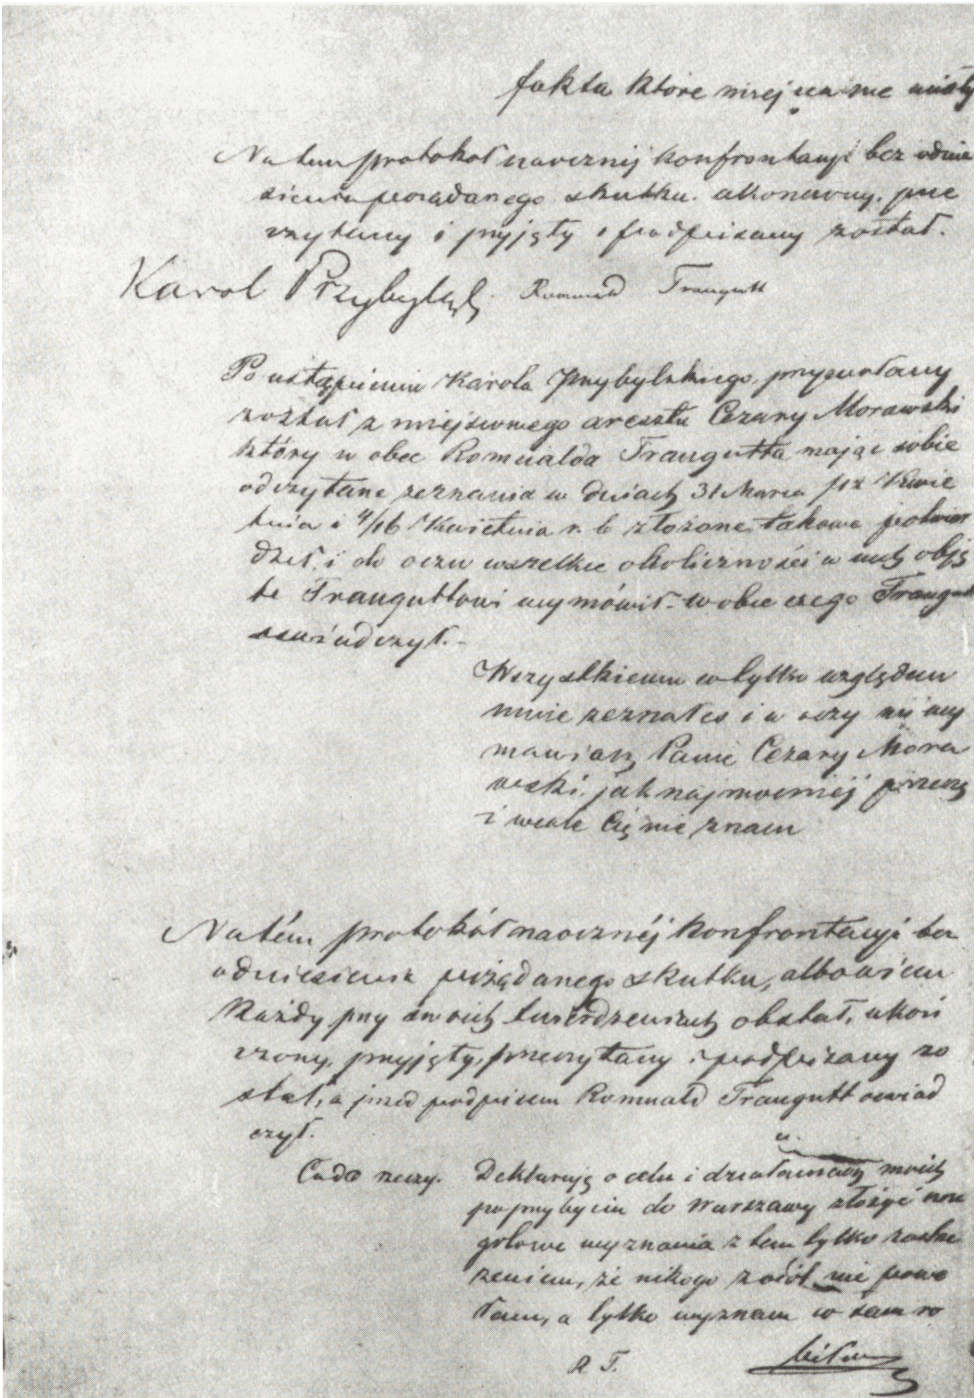 fakta które miejsca nie miały
Na tem protokół naocznéj konfrontacyi bez odnie
sienia porządanego skutku. ukończony, prze
czytany i przyjęty i podpisany został.
Karol Przybylski Romuald Traugutt
Po ustąpieniu Karola Przybylskiego, przywołany
został z miejscowego aresztu Cezary Morawski
który w obec Romualda Traugutta mając sobie
odczytane zeznania w dniach 31 Marca Kwie
tnia i 4/16 Kwietnia r. b. złożone, takowe potwier
dził, i do oczu wszelkie okoliczności w nich obję
te Trauguttowi wymówił. w obec czego Traugutt
oświadczył. -
Wszystkiemu co tylko względem
mnie zeznałeś i w oczy mi wy
mawiasz Panie Cezary Mora
wski, jak najmocniéj przeczę
i wcale Cię nie znam
Na tém protokół naocznéj konfrontacyi bez
odniesienia pożądanego skutku, albowiem
każdy przy swoich twierdzeniach obstał, ukoń
czony, przyjęty, przeczytany i podpisany zo
stał, a przed podpisem Romuald Traugutt oświad
czył.
rzeczy. Deklaruję o celu i działaniach moich
po przybyciu do Warszawy złożyć
gołowe wyznania z tem tylko zastrze
żeniem, że nikogo nie powo
łam, a tylko wyznam co sam ro
R T. biłem